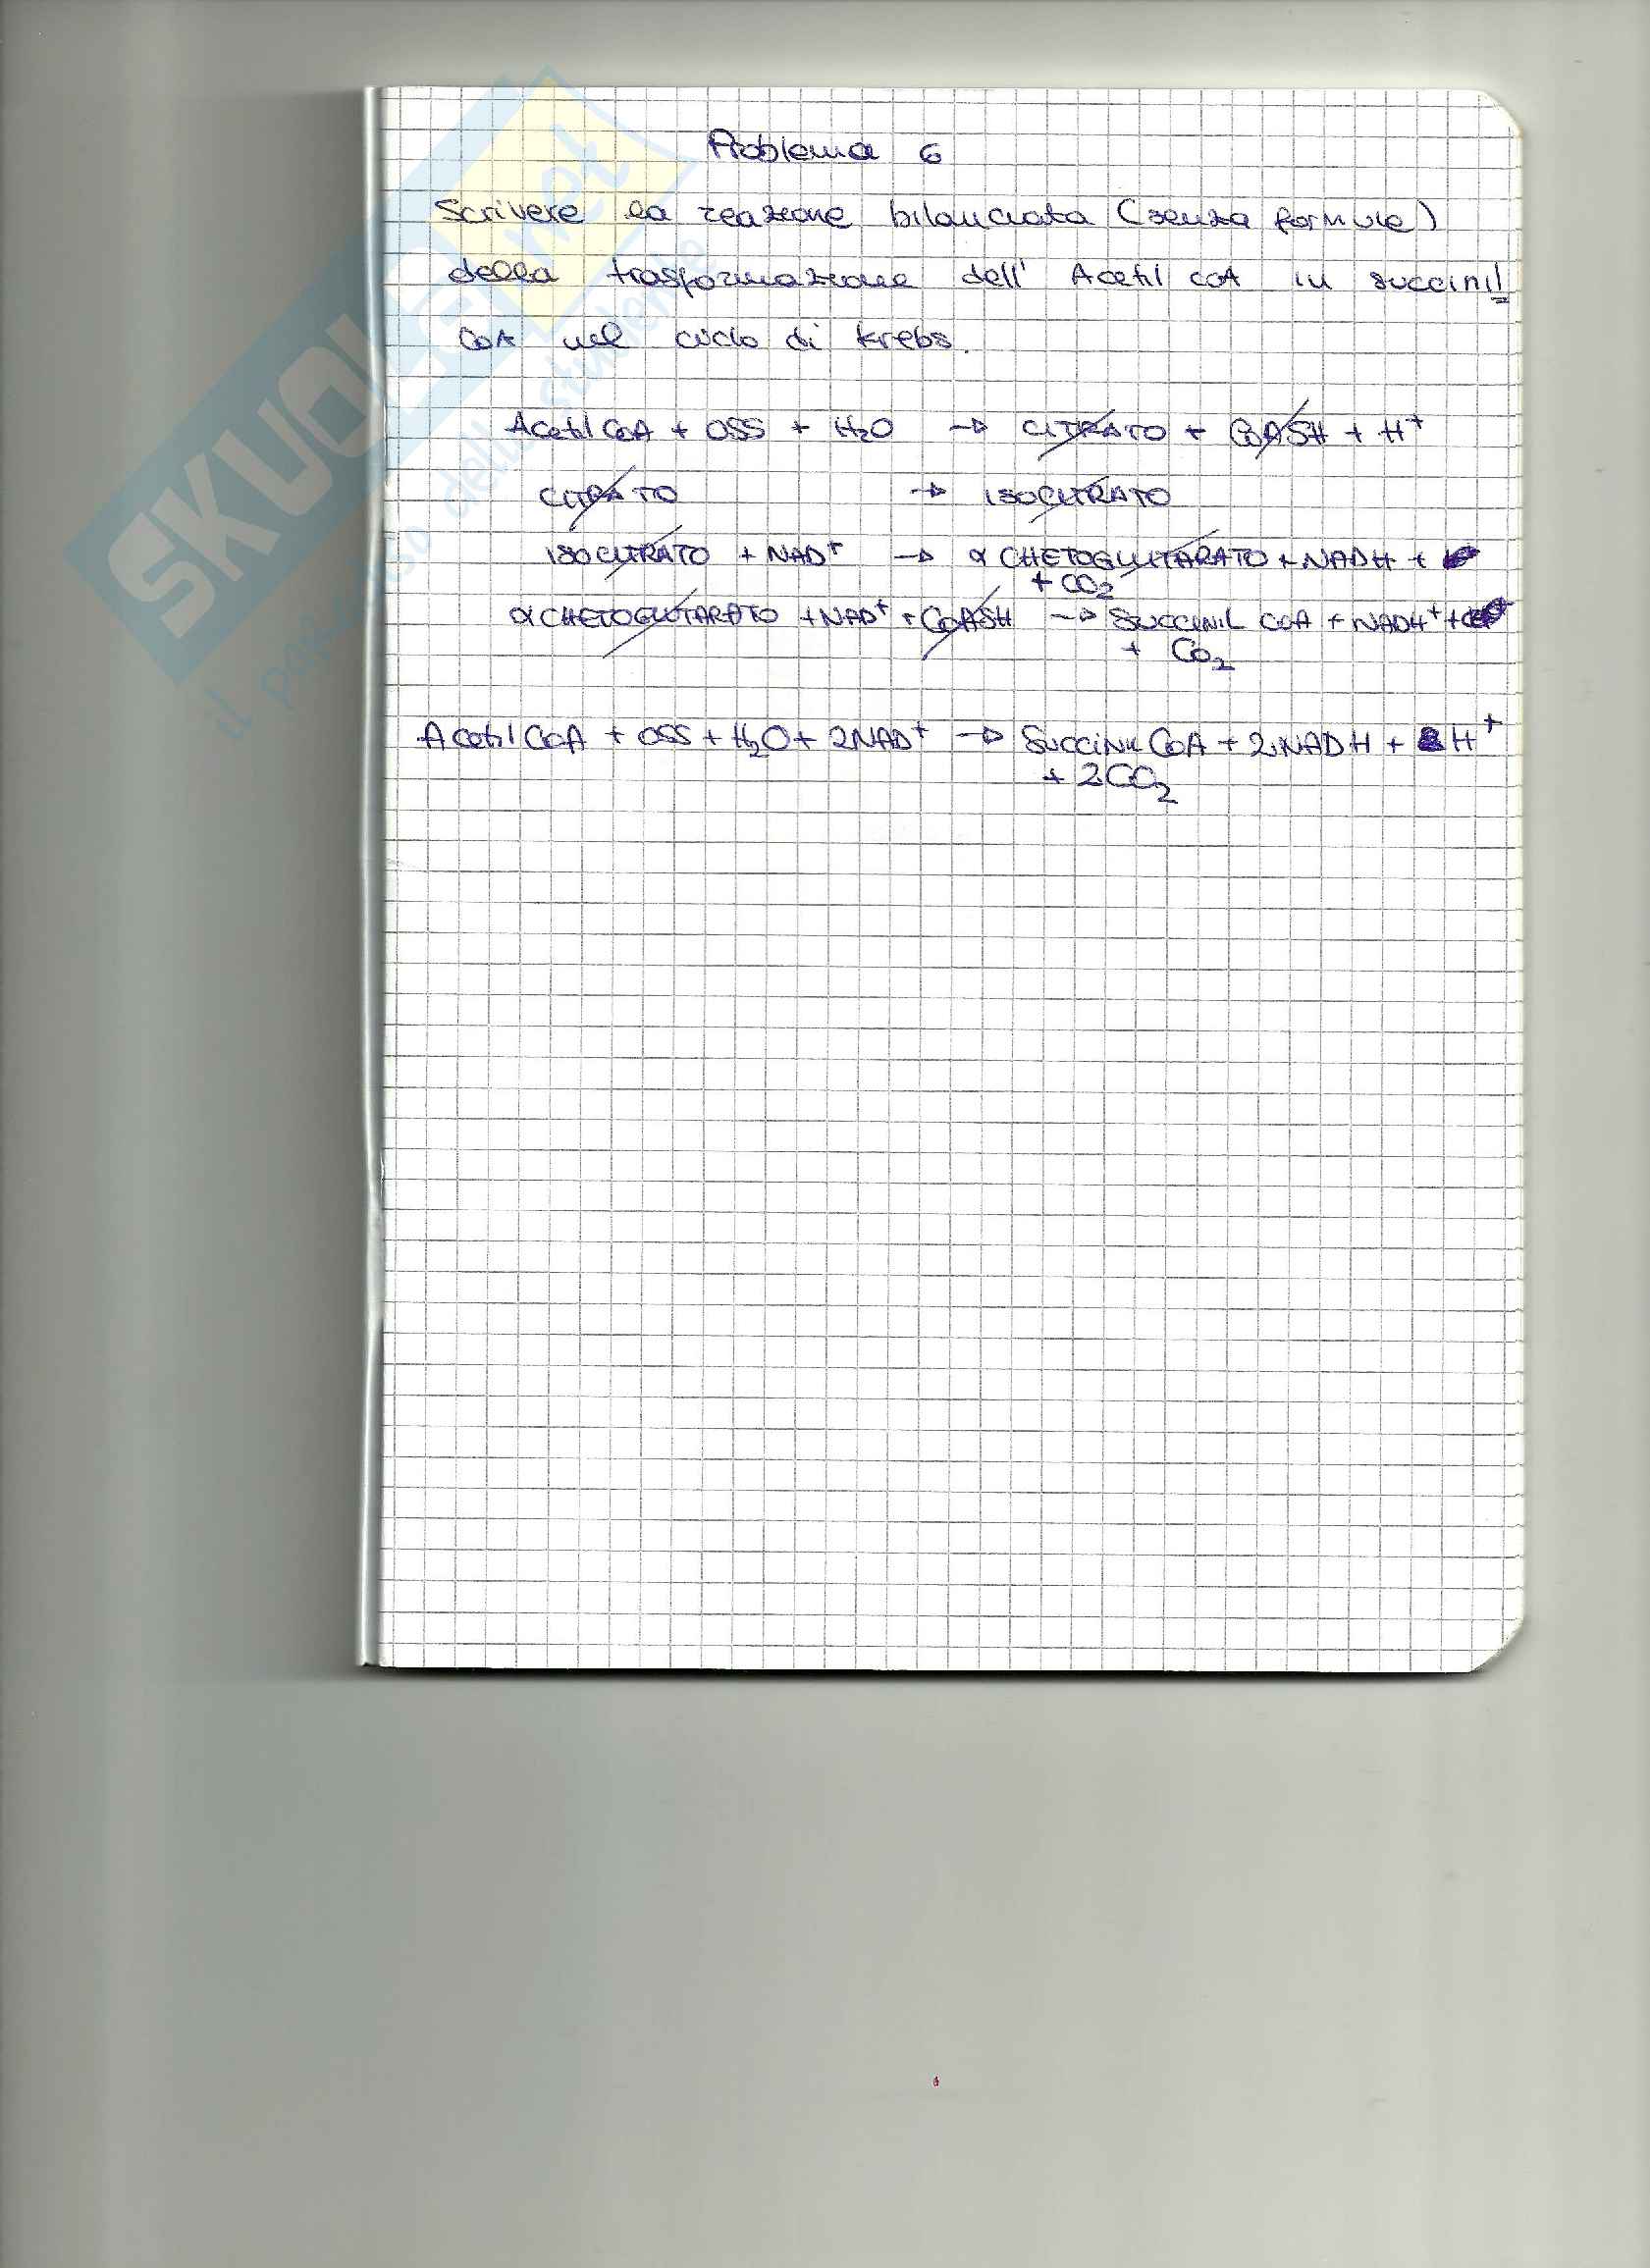 Problema 6
Scrivere la reazione bilanciata (senza formule)
della trasformazione dell' Acetil CoA in succinil
CoA nel ciclo di krebs.
Acetil CoA + OSS + H₂O → CITRATO + CoASH + H⁺
CITRATO → ISOCITRATO
ISOCITRATO + NAD⁺ → α CHETOGLUTARATO + NADH +
+ CO₂
α CHETOGLUTARATO + NAD⁺ + CoASH → SUCCINIL CoA + NADH⁺ +
+ CO₂
Acetil CoA + OSS + H₂O + 2NAD⁺ → Succinil CoA + 2NADH + H⁺
+ 2CO₂
SKUOLA.net
il paradiso dello studente